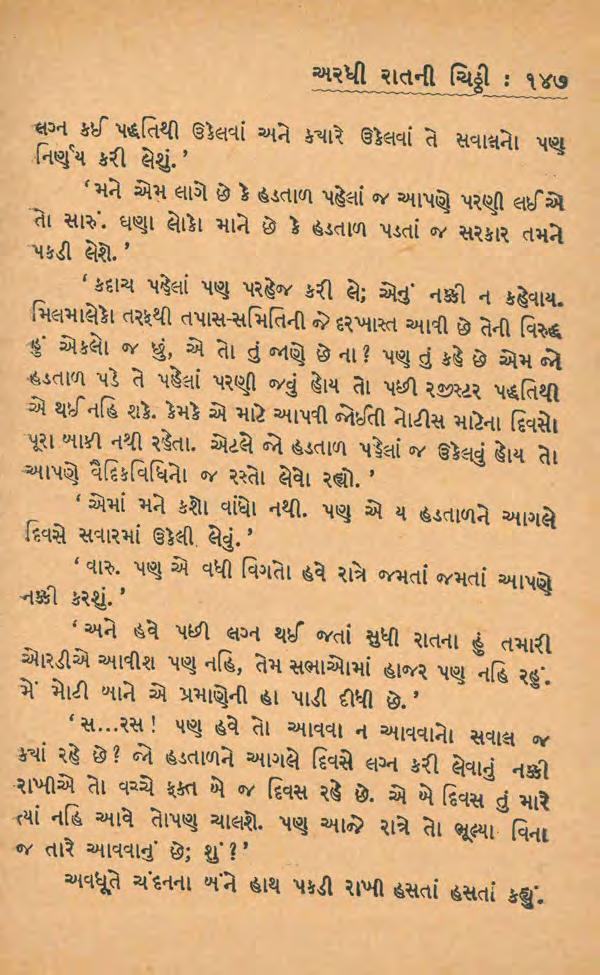 અરધી રાતની ચિઠ્ઠી : ૧૪૭
લગ્ન કઈ પદ્ધતિથી ઉકેલવાં અને ક્યારે ઉકેલવાં તે સવાલનો પણ
નિર્ણય કરી લેશું.'
'મને એમ લાગે છે કે હડતાળ પહેલાં જ આપણે પરણી લઈએ
તો સારું. ઘણા લોકો માને છે કે હડતાળ પડતાં જ સરકાર તમને
પકડી લેશે.'
'કદાચ પહેલાં પણ પરહેજ કરી લે; એનું નક્કી ન કહેવાય.
મિલમાલેકો તરફથી તપાસ-સમિતિની જે દરખાસ્ત આવી છે તેની વિરુદ્ધ
હું એકલો જ છું, એ તો તું જાણે છે ના? પણ તું કહે છે એમ જો
હડતાળ પડે તે પહેલાં પરણી જવું હોય તો પછી રજીસ્ટર પદ્ધતિથી
એ થઈ નહિ શકે. કેમકે એ માટે આપવી જોઈતી નોટીસ માટેના દિવસો
પૂરા બાકી નથી રહેતા. એટલે જો હડતાળ પહેલાં જ ઉકેલવું હોય તો
આપણે વૈદિકવિધિનો જ રસ્તો લેવો રહ્યો.'
'એમાં મને કશો વાંધો નથી. પણ એ ય હડતાળને આગલે
દિવસે સવારમાં ઉકેલી લેવું.'
'વારુ. પણ એ બધી વિગતો હવે રાત્રે જમતાં જમતાં આપણે
નક્કી કરશું.'
'અને હવે પછી લગ્ન થઈ જતાં સુધી રાતના હું તમારી
ઓરડીએ આવીશ પણ નહિ, તેમ સભાઓમાં હાજર પણ નહિ રહું.
મેં મોટી બાને એ પ્રમાણેની હા પાડી દીધી છે.'
'સ...રસ! પણ હવે તો આવવા ન આવવાનો સવાલ જ
ક્યાં રહે છે? જો હડતાળને આગલે દિવસે લગ્ન કરી લેવાનું નક્કી
રાખીએ તો વચ્ચે ફક્ત બે જ દિવસ રહે છે. એ બે દિવસ તું મારે
ત્યાં નહિ આવે તોપણ ચાલશે. પણ આજે રાત્રે તો ભૂલ્યા વિના
જ તારે આવવાનું છે; શું?'
અવધૂતે ચંદનના બંને હાથ પકડી રાખી હસતાં હસતાં કહ્યું.